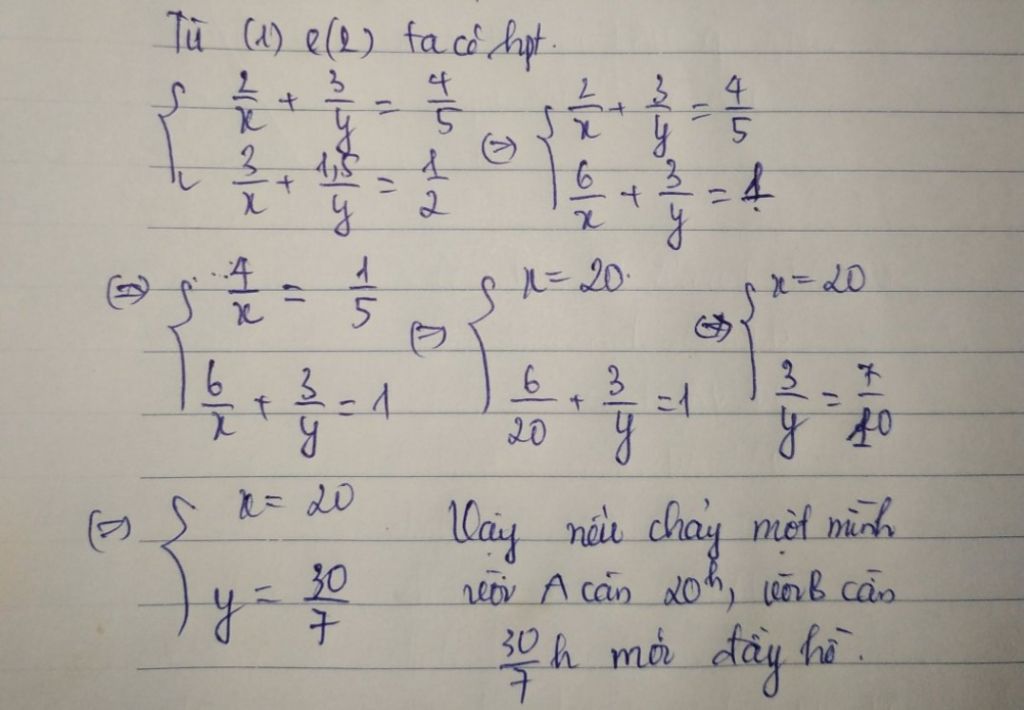 Từ (1) e(2) ta có hpt.
{ 2/x + 3/y = 4/5 ; 3/x + 1,5/y = 1/2 (=) { 2/x + 3/y = 4/5 ; 6/x + 3/y = 1
(=) { 4/x = 1/5 ; 6/x + 3/y = 1 (=) { x = 20 ; 6/20 + 3/y = 1 (=) { x = 20 ; 3/y = 7/10
(=) { x = 20 ; y = 30/7
Vậy nếu chảy một mình
vòi A cần 20h, vòi B cần
30/7 h mới đầy hồ.